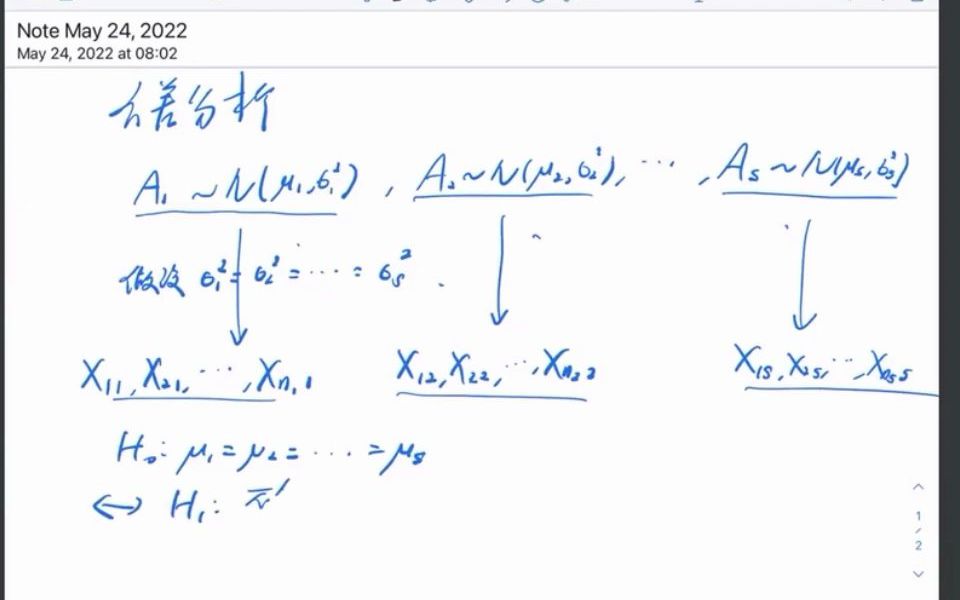 Note May 24, 2022
May 24, 2022 at 08:02
方差分析
A₁ ~ N(μ₁, σ₁²), A₂ ~ N(μ₂, σ₂²), ⋯, Aₛ ~ N(μₛ, σₛ²)
假设 σ₁² = σ₂² = ⋯ = σₛ².
X₁₁, X₂₁, ⋯, Xₙ₁1 X₁₂, X₂₂, ⋯, Xₙ₂2 X₁ₛ, X₂ₛ, ⋯, Xₙₛs
H₀: μ₁ = μ₂ = ⋯ = μₛ
↔ H₁:
1
/
2